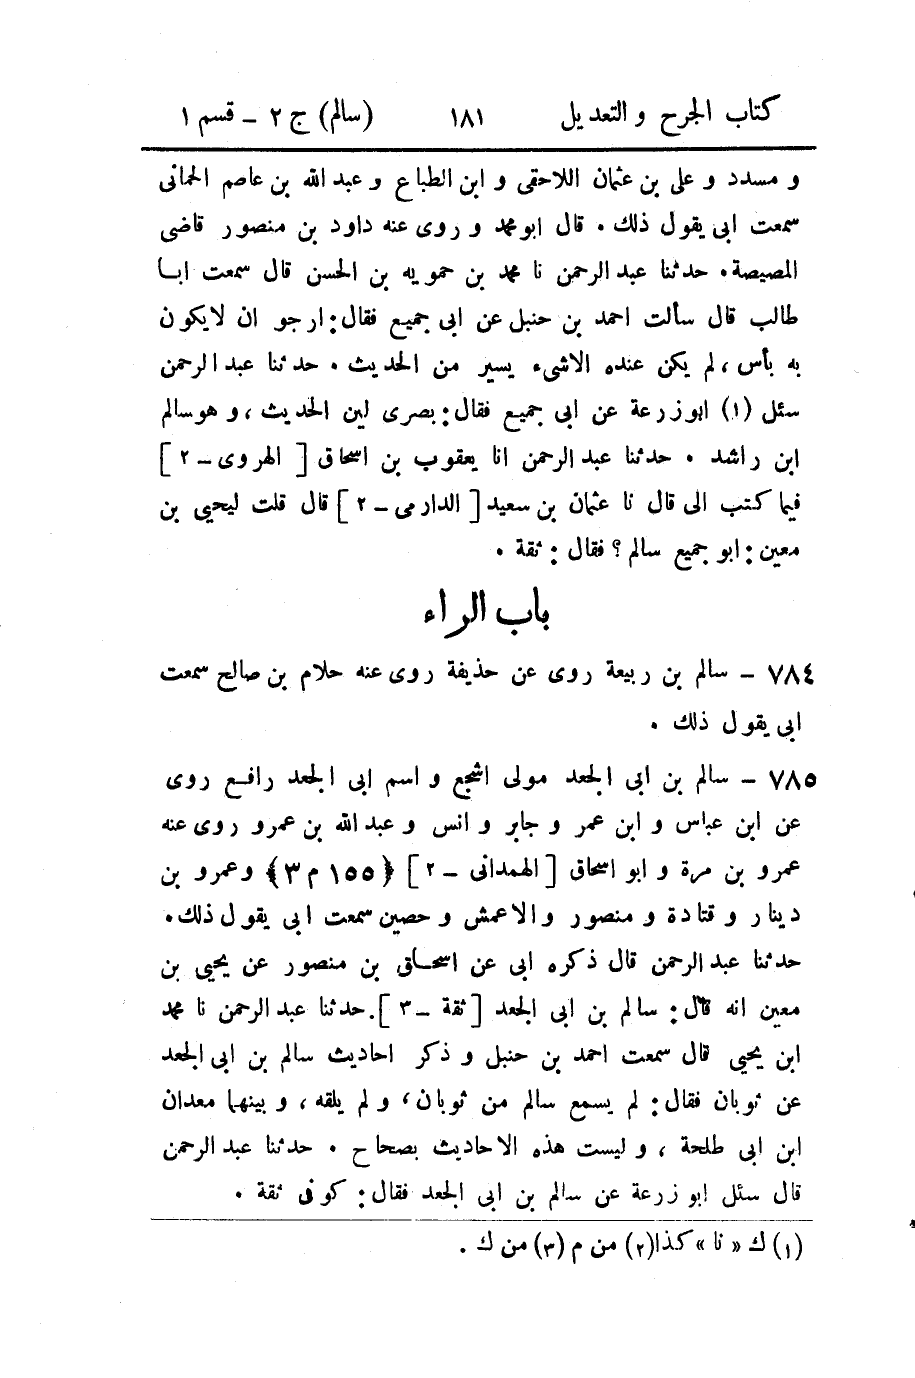 كتاب الجرح و التعديل ١٨١ (سالم) ج ٢ - قسم ١
و مسدد و على بن عثمان اللاحقى و ابن الطباع و عبد الله بن عاصم الحمانى
سمعت ابى يقول ذلك . قال ابو محمد و روى عنه داود بن منصور قاضى
المصيصة . حدثنا عبد الرحمن نا محمد بن حمويه بن الحسن قال سمعت ابا
طالب قال سألت احمد بن حنبل عن ابى جميع فقال : ارجو ان لا يكون
به بأس ، لم يكن عنده الا شىء يسير من الحديث . حدثنا عبد الرحمن
سئل (١) ابو زرعة عن ابى جميع فقال : بصرى لين الحديث ، و هو سالم
ابن راشد . حدثنا عبد الرحمن انا يعقوب بن اسحاق [ الهروى - ٢ ]
فيما كتب الى قال نا عثمان بن سعيد [ الدارمى - ٢ ] قال قلت ليحيى بن
معين : ابو جميع سالم ؟ فقال : ثقة .
باب الراء
٧٨٤ - سالم بن ربيعة روى عن حذيفة روى عنه حلام بن صالح سمعت
ابى يقول ذلك .
٧٨٥ - سالم بن ابى الجعد مولى اشجع و اسم ابى الجعد رافع روى
عن ابن عباس و ابن عمر و جابر و انس و عبد الله بن عمرو روى عنه
عمرو بن مرة و ابو اسحاق [ الهمدانى - ٢ ] ﴿ ١٥٥ م ٣ ﴾ و عمرو بن
دينار و قتادة و منصور و الاعمش و حصين سمعت ابى يقول ذلك .
حدثنا عبد الرحمن قال ذكره ابى عن اسحاق بن منصور عن يحيى بن
معين انه قال : سالم بن ابى الجعد [ ثقة - ٣ ] . حدثنا عبد الرحمن نا محمد
ابن يحيى قال سمعت احمد بن حنبل و ذكر احاديث سالم بن ابى الجعد
عن ثوبان فقال : لم يسمع سالم من ثوبان ، و لم يلقه ، و بينهما معدان
ابن ابى طلحة ، و ليست هذه الاحاديث بصحاح . حدثنا عبد الرحمن
قال سئل ابو زرعة عن سالم بن ابى الجعد فقال : كوفى ثقة .
(١) ك « نا » كذا (٢) من م (٣) من ك .